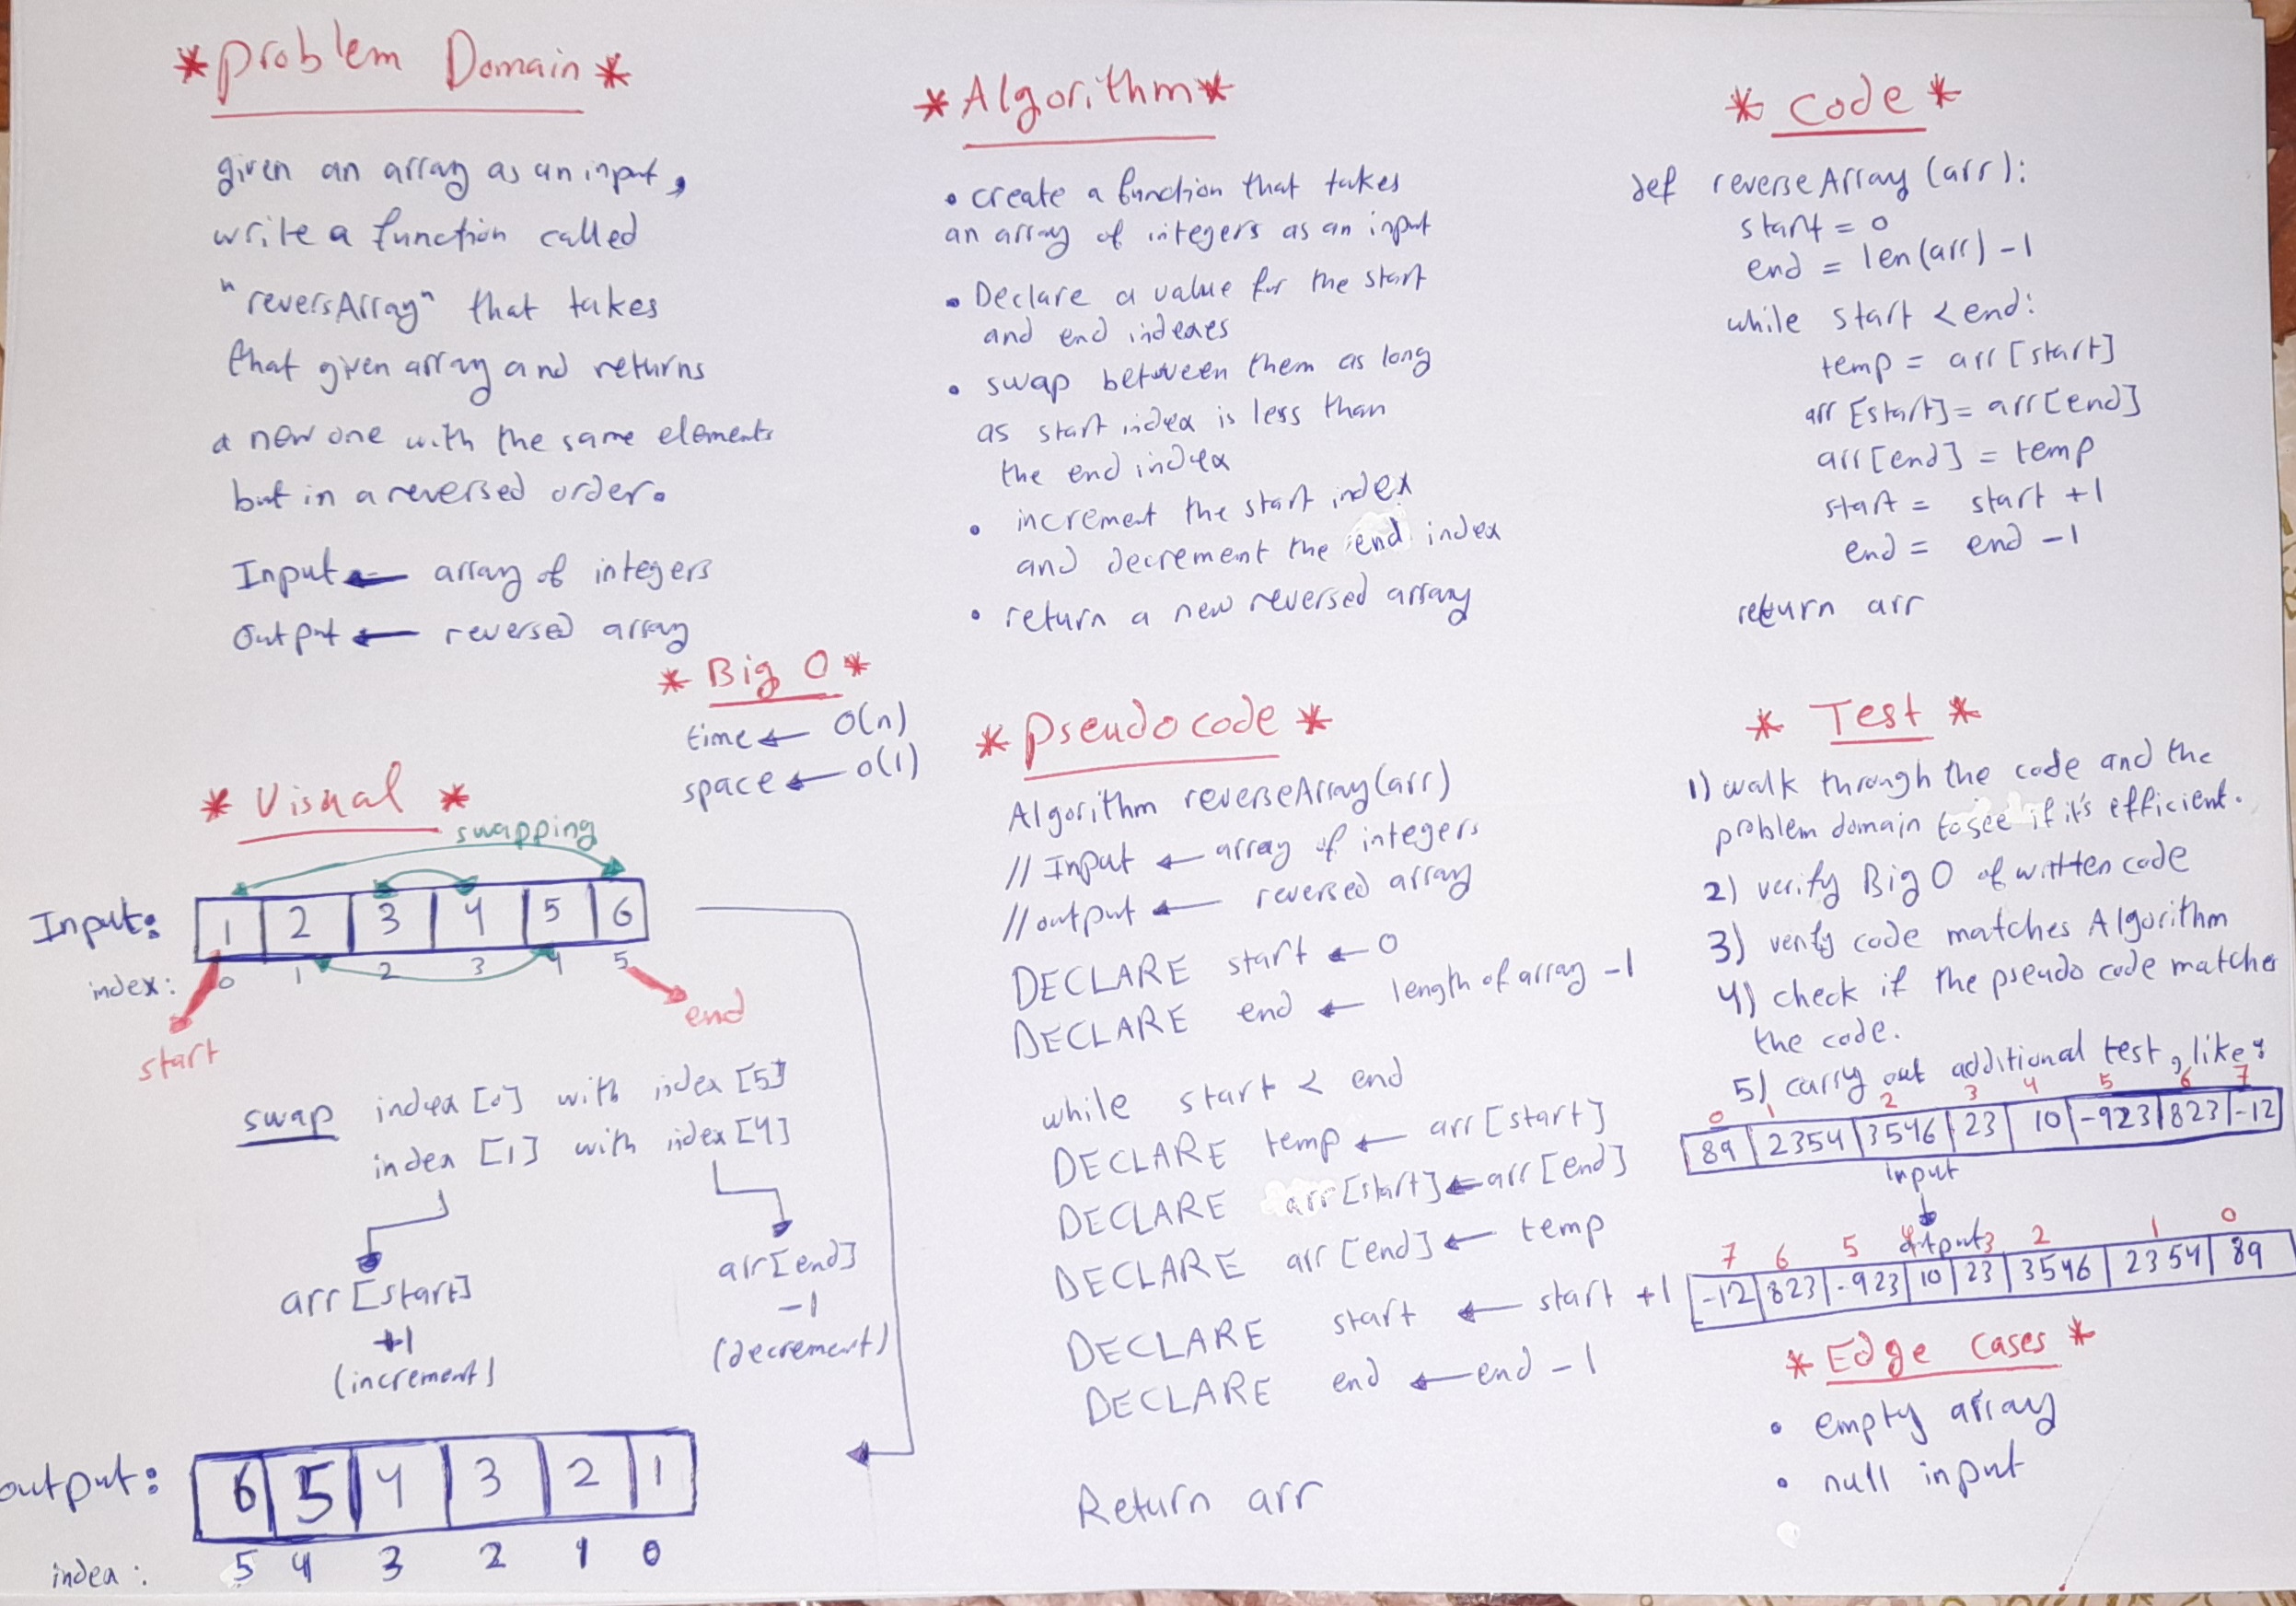 *Problem Domain*
given an array as an input,
write a function called
"reversArray" that takes
that given array and returns
a new one with the same elements
but in a reversed order.
Input ← array of integers
Output ← reversed array
*Big O*
time ← O(n)
space ← O(1)
*Visual*
swapping
Input: 1 2 3 4 5 6
index: 0 1 2 3 4 5
start
end
swap index [0] with index [5]
index [1] with index [4]
arr[start]
+1
(increment)
arr[end]
-1
(decrement)
output: 6 5 4 3 2 1
index: 5 4 3 2 1 0
*Algorithm*
• create a function that takes
an array of integers as an input
• Declare a value for the start
and end indexes
• swap between them as long
as start index is less than
the end index
• increment the start index
and decrement the end index
• return a new reversed array
*Pseudo code*
Algorithm reverseArray(arr)
// Input ← array of integers
// output ← reversed array
DECLARE start ← 0
DECLARE end ← length of array -1
while start < end
DECLARE temp ← arr[start]
DECLARE arr[start] ← arr[end]
DECLARE arr[end] ← temp
DECLARE start ← start +1
DECLARE end ← end -1
Return arr
*Code*
def reverseArray(arr):
start = 0
end = len(arr) -1
while start < end:
temp = arr[start]
arr[start] = arr[end]
arr[end] = temp
start = start +1
end = end -1
return arr
*Test*
1) walk through the code and the
problem domain to see if it's efficient.
2) verify Big O of written code
3) verify code matches Algorithm
4) check if the pseudo code matches
the code.
5) carry out additional test, like:
0 1 2 3 4 5 6 7
89 2354 3546 23 10 -923 823 -12
input
output
7 6 5 4 3 2 1 0
-12 823 -923 10 23 3546 2354 89
*Edge cases*
• empty array
• null input